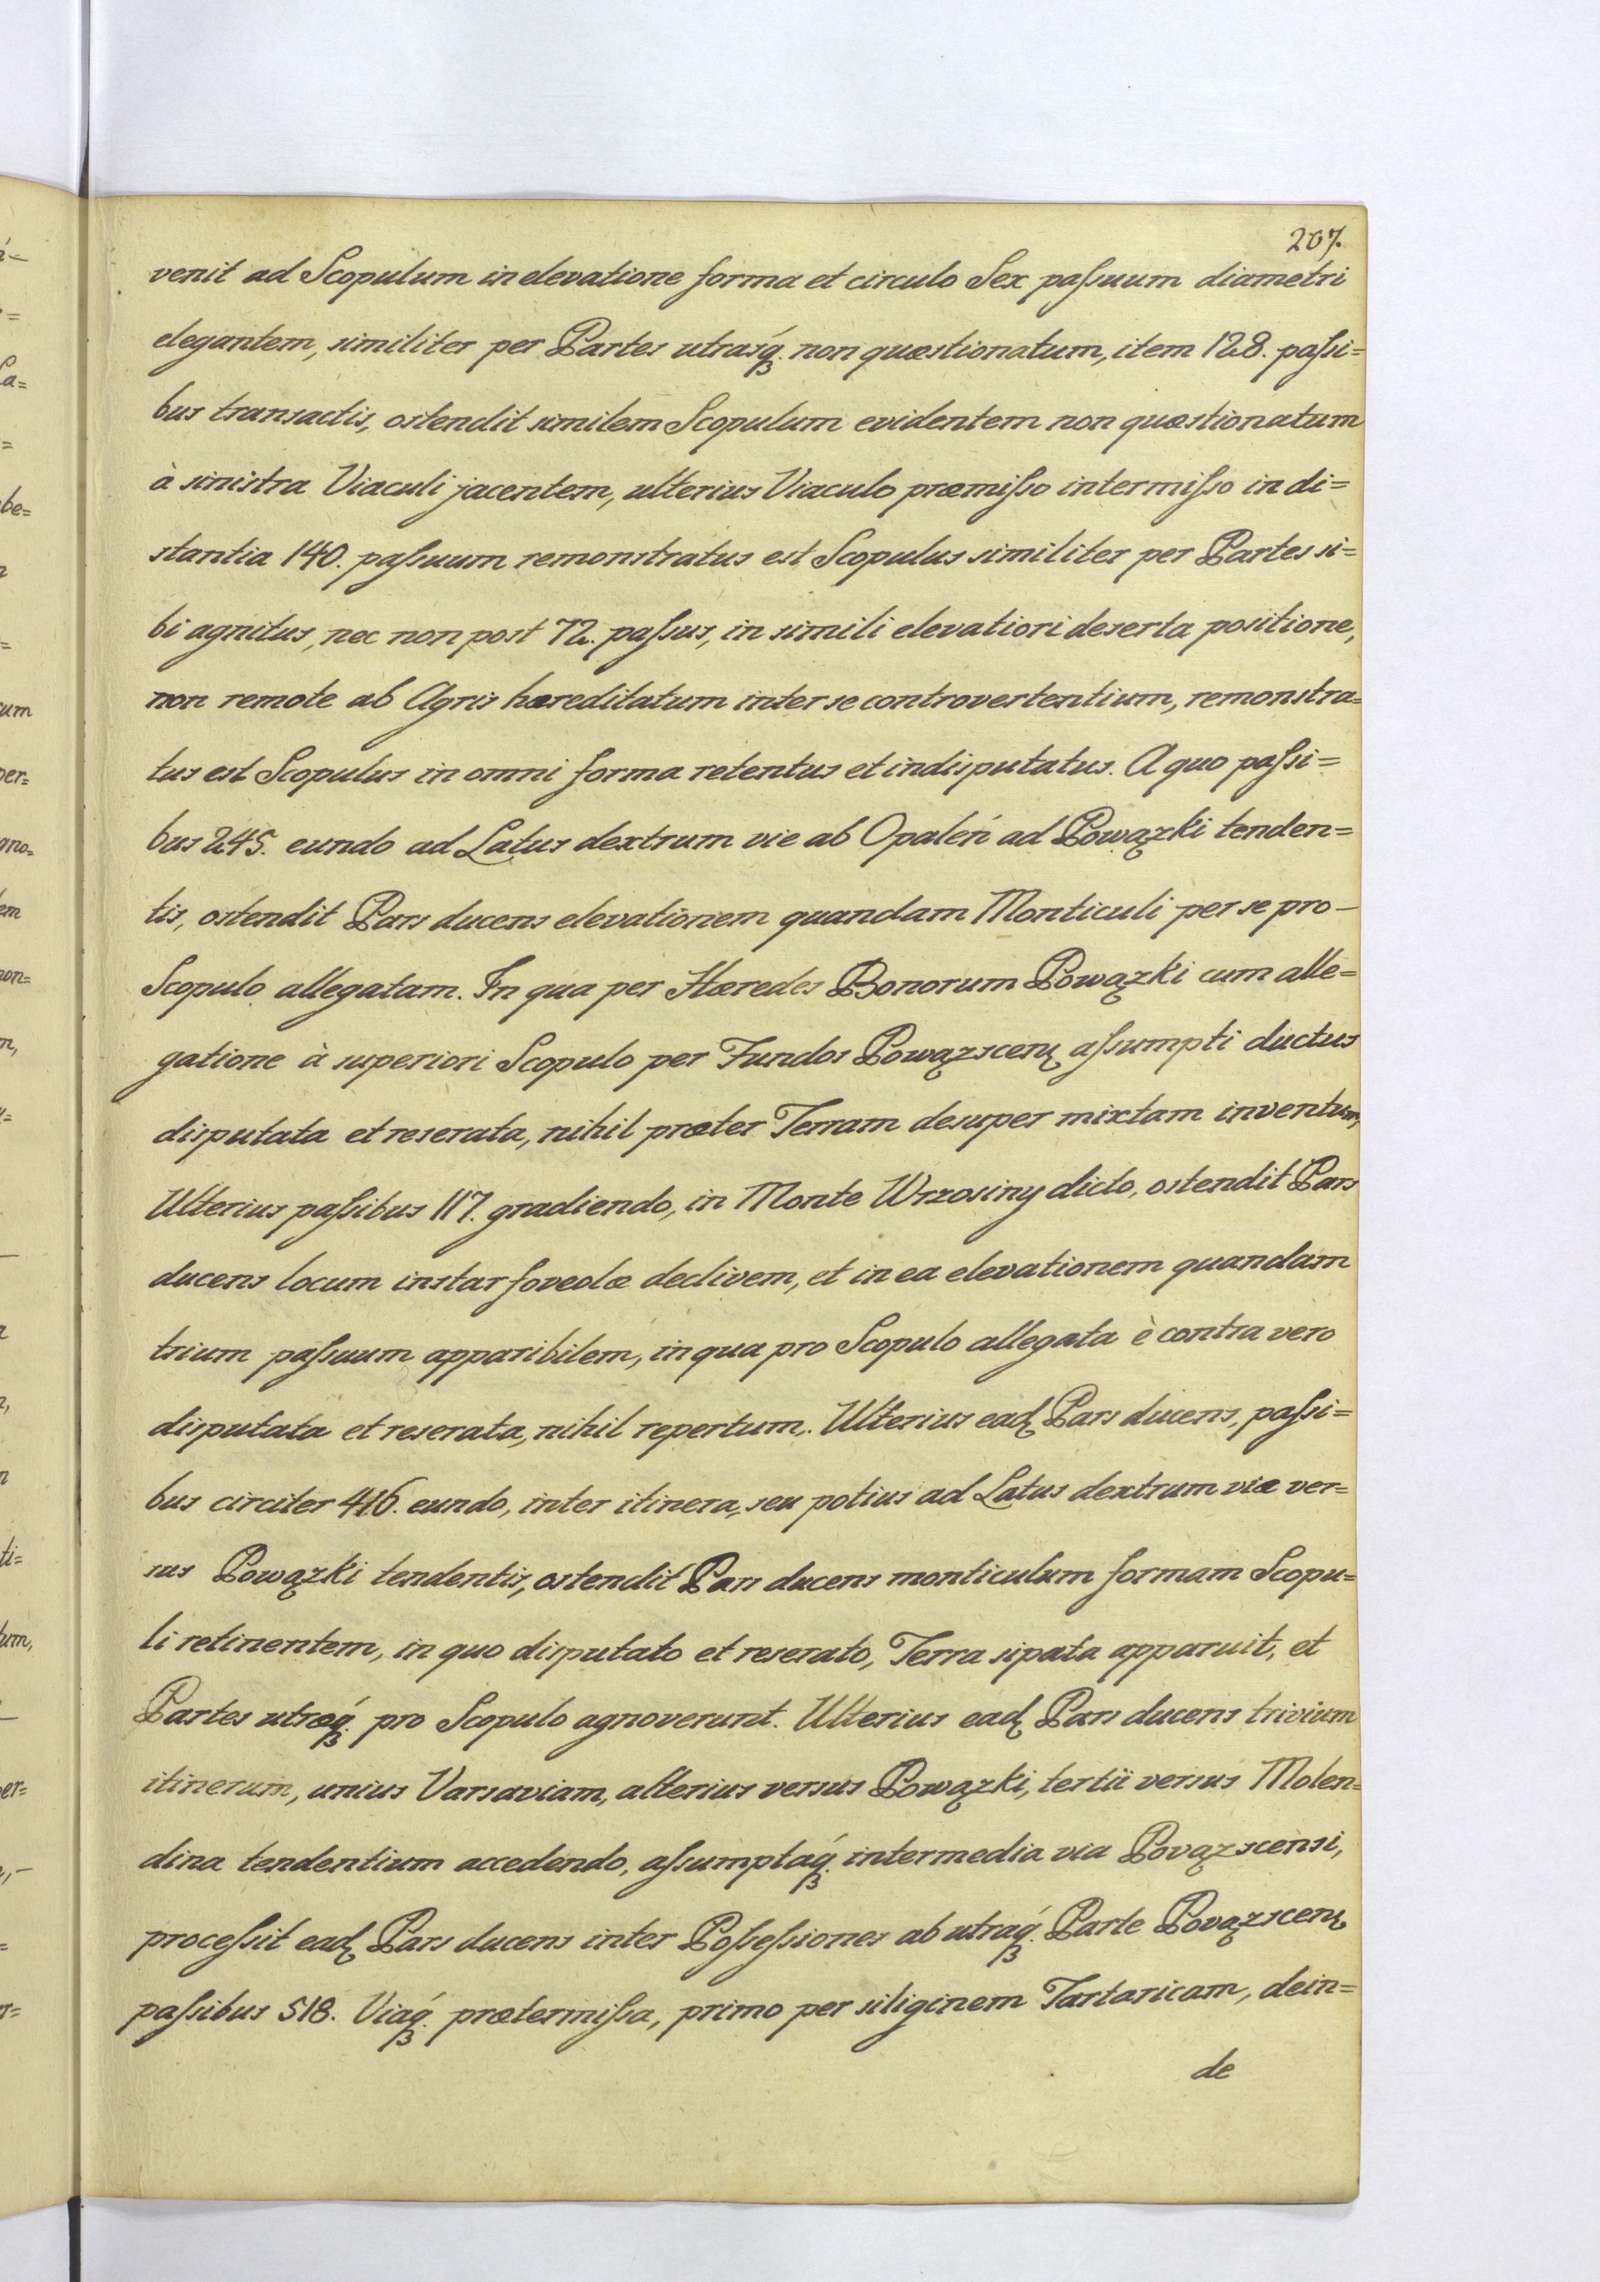 207.
venit ad Scopulum in elevatione forma et circulo Sex paſsuum diametri
elegantem, similiter per Partes utrasq́ꝫ. non quæstionatum, item 128. paſsi=
bus transactis, ostendit similem Scopulum evidentem non quæstionatum
à sinistra Viaculi jacentem, ulterius Viaculo præmiſso intermiſso in di=
stantia 140. paſsuum remonstratus est Scopulus similiter per Partes si=
bi agnitus, nec non post 72. paſsus, in simili elevatiori deserta positione,
non remote ab Agris hæreditatum inter se controvertentium, remonstra=
tus est Scopulus in omni forma retentus et indisputatus. A quo paſsi=
bus 245. eundo ad Latus dextrum vie ab Opaleń ad Powązki tenden=
tis, ostendit Pars ducens elevationem quandam Monticuli per se pro-
Scopulo allegatam. In qua per Hæredes Bonorum Powązki cum alle=
gatione à superiori Scopulo per Fundos Powązscen̨ aſsumpti ductus
disputata et reserata, nihil præter Terram desuper mixtam inventum,
Ulterius paſsibus 117. gradiendo, in Monte Wrzosiny dicto, ostendit Pars
ducens locum instar foveolæ declivem, et in ea elevationem quandam
trium paſsuum apparibilem, in qua pro Scopulo allegata è contra vero
disputata et reserata, nihil repertum. Ulterius ead̨ Pars ducens, paſsi=
bus circiter 416. eundo, inter itinera, seu potius ad Latus dextrum viæ ver=
sus Powązki tendentis, ostendit Pars ducens monticulum formam Scopu=
li retinentem, in quo disputato et reserato, Terra sipata apparuit, et
Partes utræq́ꝫ. pro Scopulo agnoverunt. Ulterius ead̨ Pars ducens trivium
itinerum, unius Varsaviam, alterius versus Powązki, tertii versus Molen=
dina tendentium accedendo, aſsumptáq́ꝫ. intermedia via Povązscensi,
proceſsit ead̨ Pars ducens inter Poſseſsiones ab utraq́ꝫ. Parte Povązscen̨
paſsibus 518. Viaq́ꝫ. prætermiſsa, primo per siliginem Tartaricam, dein=
de